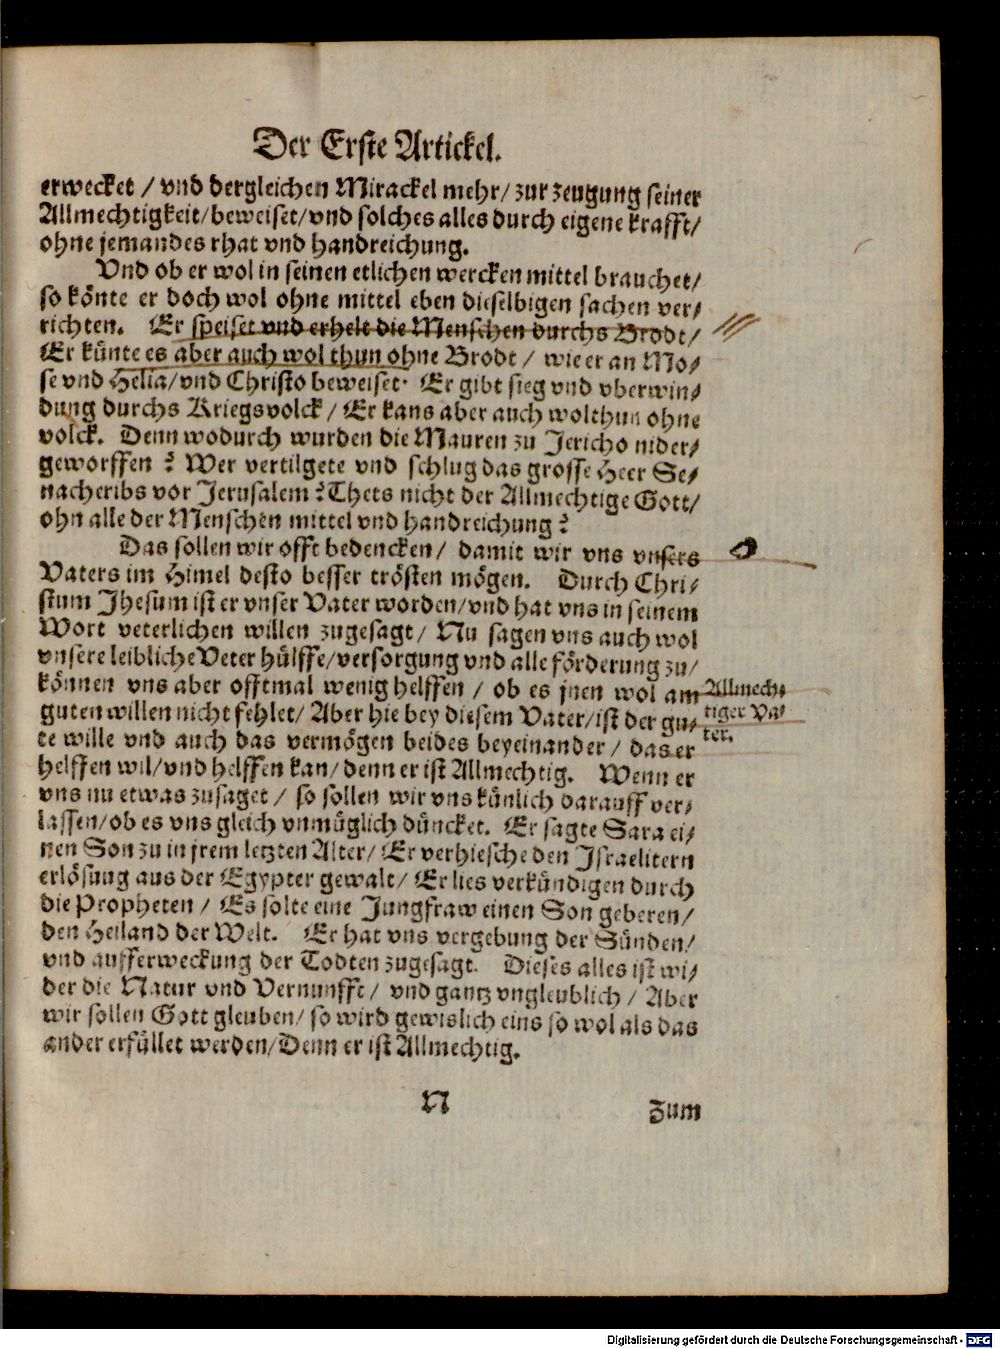 Der Erste Artickel.
erwecket / vnd dergleichen Mirackel mehr / zur zeugung seiner
Allmechtigkeit / beweiset / vnd solches alles durch eigene krafft /
ohne jemandes rhat vnd handreichung.
Vnd ob er wol in seinen etlichen wercken mittel brauchet /
so könte er doch wol ohne mittel eben dieselbigen sachen ver⸗
richten. Er speiset vnd erhelt die Menschen durchs Brodt /
Er künte es aber auch wol thun ohne Brodt / wie er an Mo⸗
se vnd Helia / vnd Christo beweiset. Er gibt sieg vnd vberwin⸗
dung durchs Kriegsvolck / Er kans aber auch wol thun ohne
volck. Denn wodurch wurden die Mauren zu Jericho nider⸗
geworffen ? Wer vertilgete vnd schlug das grosse Heer Se⸗
nacheribs vor Jerusalem ? Thets nicht der Allmechtige Gott /
ohn alle der Menschen mittel vnd handreichung ?
Das sollen wir offt bedencken / damit wir vns vnsers
Vaters im Himel desto besser trösten mögen. Durch Chri⸗
stum Jhesum ist er vnser Vater worden / vnd hat vns in seinem
Wort veterlichen willen zugesagt / Nu sagen vns auch wol
vnsere leibliche Veter hülffe / versorgung vnd alle förderung zu /
können vns aber offtmal wenig helffen / ob es jnen wol am
guten willen nicht fehlet / Aber hie bey diesem Vater / ist der gu⸗
te wille vnd auch das vermögen beides beyeinander / das er
helffen wil / vnd helffen kan / denn er ist Allmechtig. Wenn er
vns nu etwas zusaget / so sollen wir vns künlich darauff ver⸗
lassen / ob es vns gleich vnmüglich düncket. Er sagte Sara ei⸗
nen Son zu in jrem letzten Alter / Er verhiesche den Israelitern
erlösung aus der Egypter gewalt / Er lies verkündigen durch
die Propheten / Es solte eine Jungfraw einen Son geberen /
den Heiland der Welt. Er hat vns vergebung der Sünden /
vnd aufferweckung der Todten zugesagt. Dieses alles ist wi⸗
der die Natur vnd Vernunfft / vnd gantz vngleublich / Aber
wir sollen Gott gleuben / so wird gewislich eins so wol als das
ander erfüllet werden / Denn er ist Allmechtig.
Allmech⸗
tiger Va⸗
ter.
N
Zum
Digitalisierung gefördert durch die Deutsche Forschungsgemeinschaft - DFG